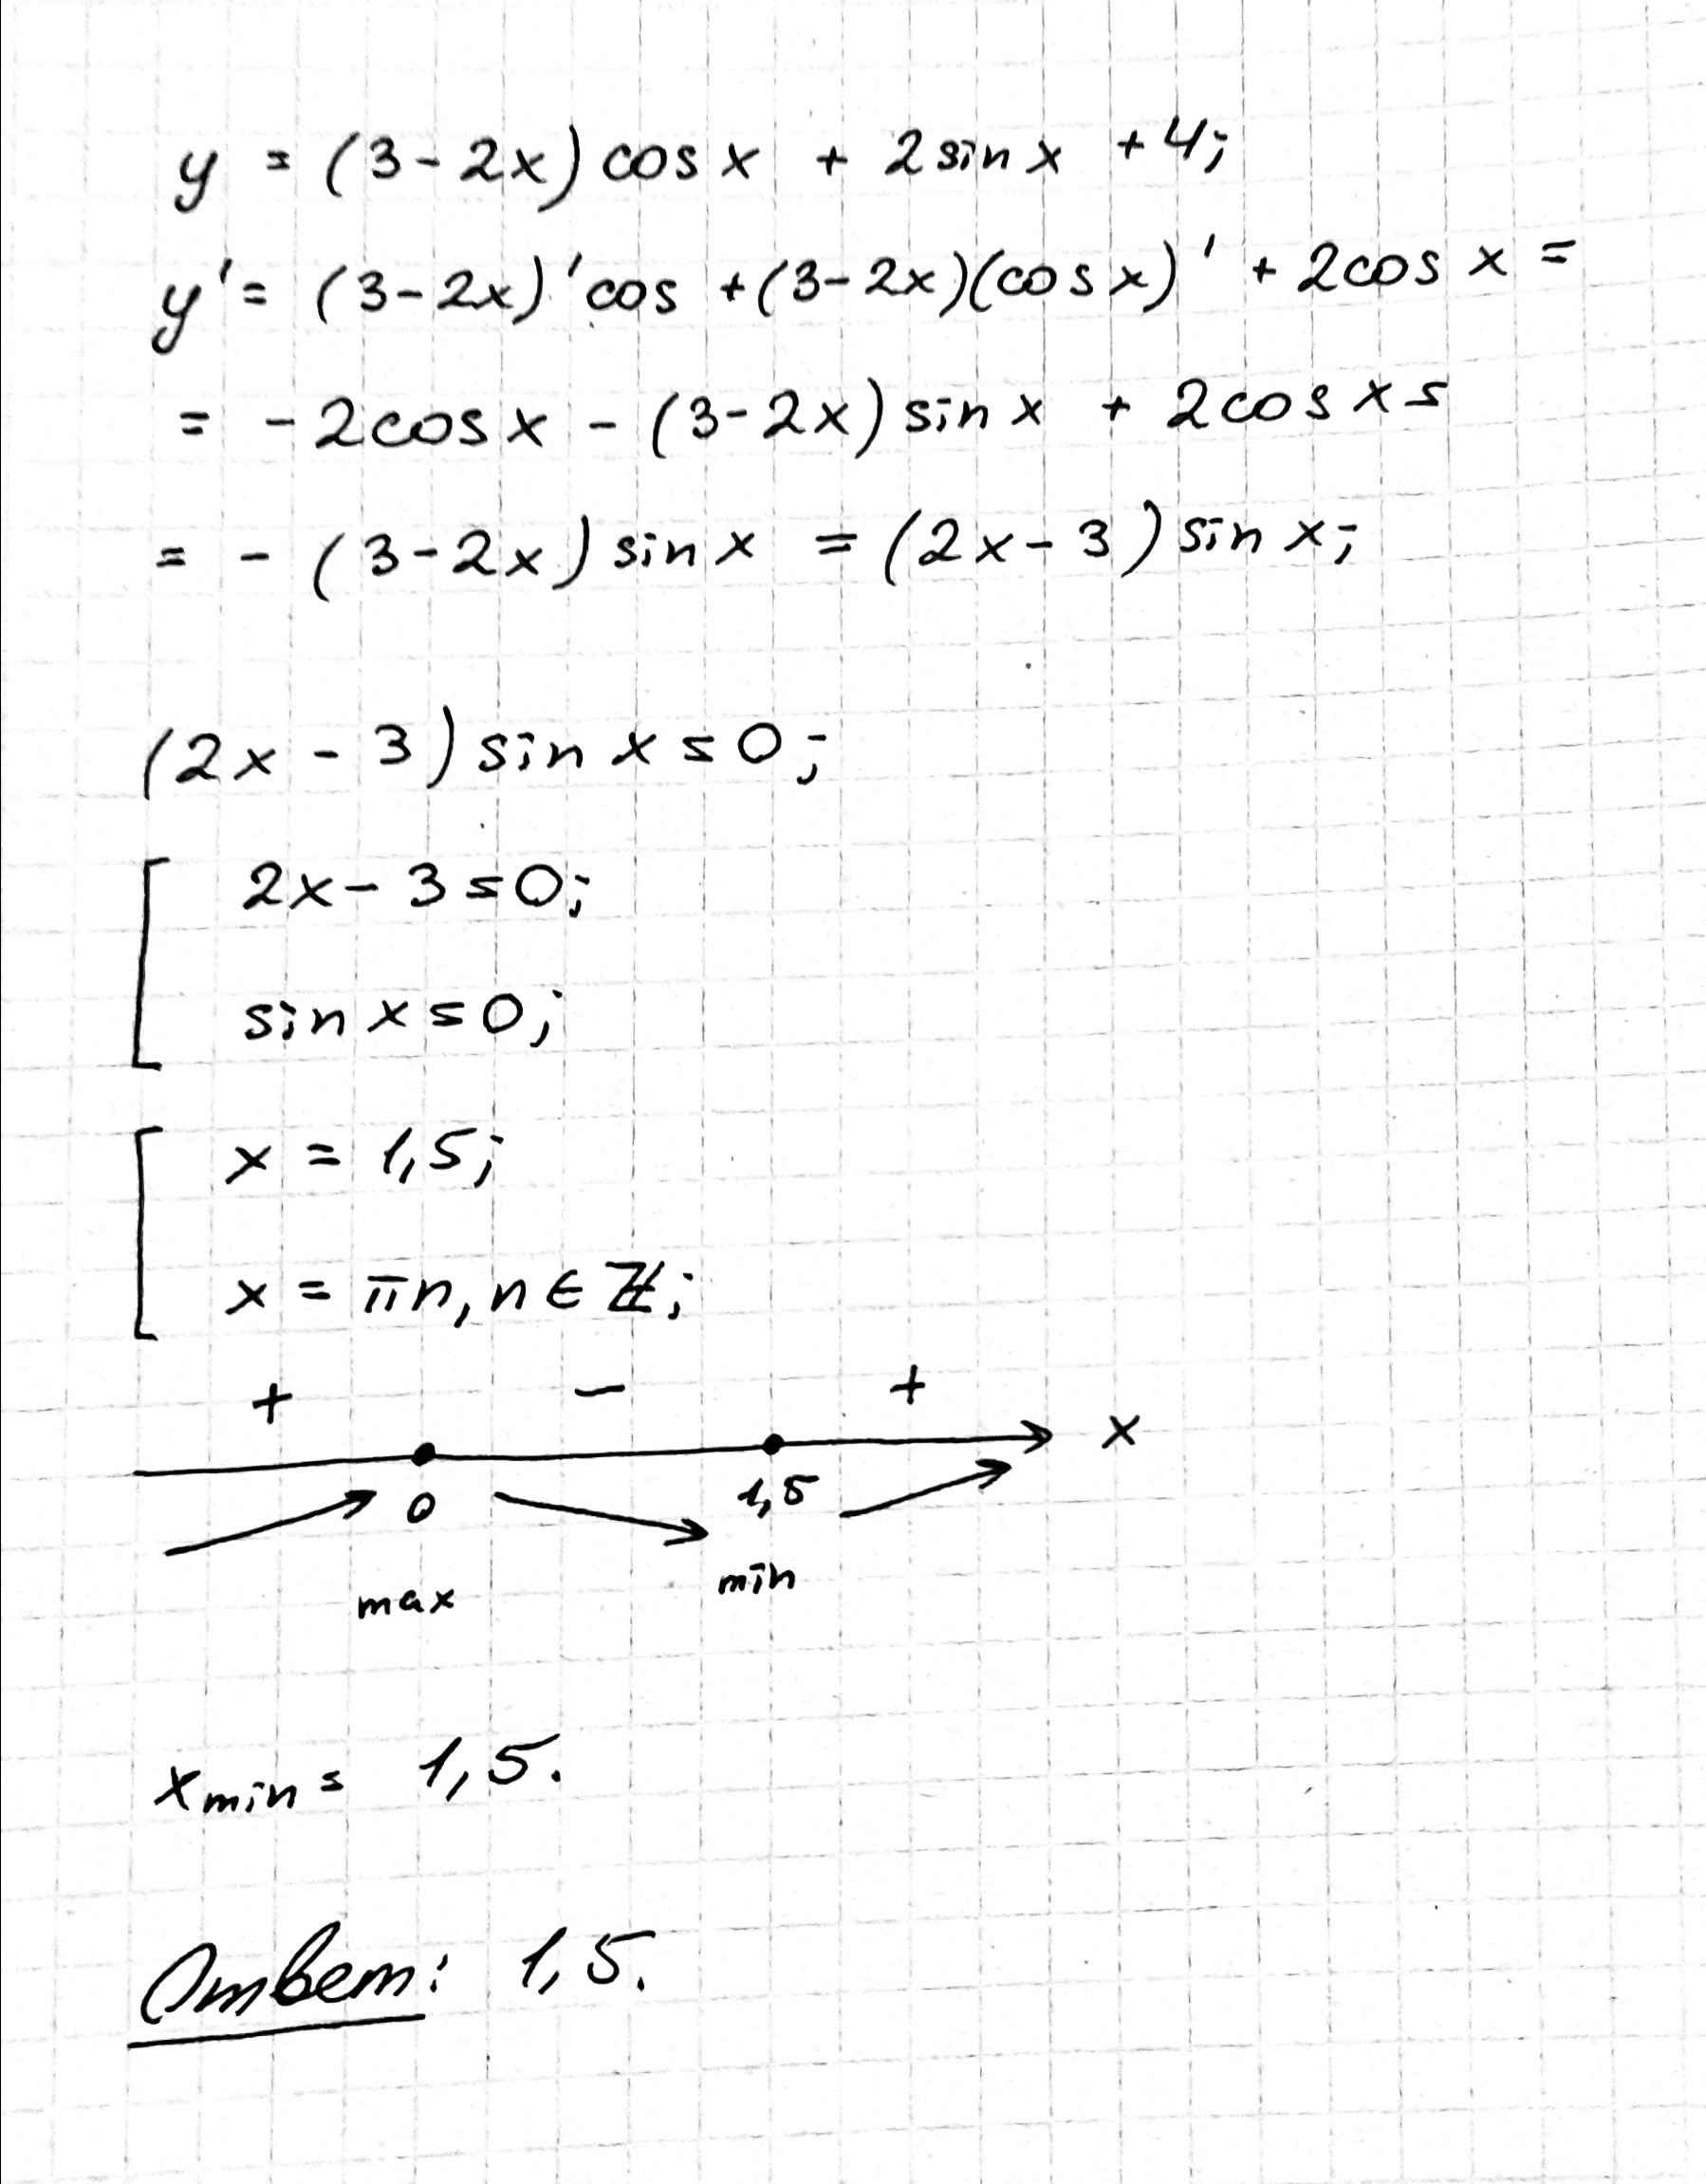 y = (3-2x) cos x + 2 sin x + 4;
y' = (3-2x)' cos + (3-2x)(cos x)' + 2cos x =
= -2cos x - (3-2x) sin x + 2cos x =
= -(3-2x) sin x = (2x-3) sin x;
(2x - 3) sin x = 0;
2x - 3 = 0;
sin x = 0;
x = 1,5;
x = πn, n ∈ ℤ;
+ − +
x
0 1,5
max min
x min = 1,5.
Ответ: 1,5.